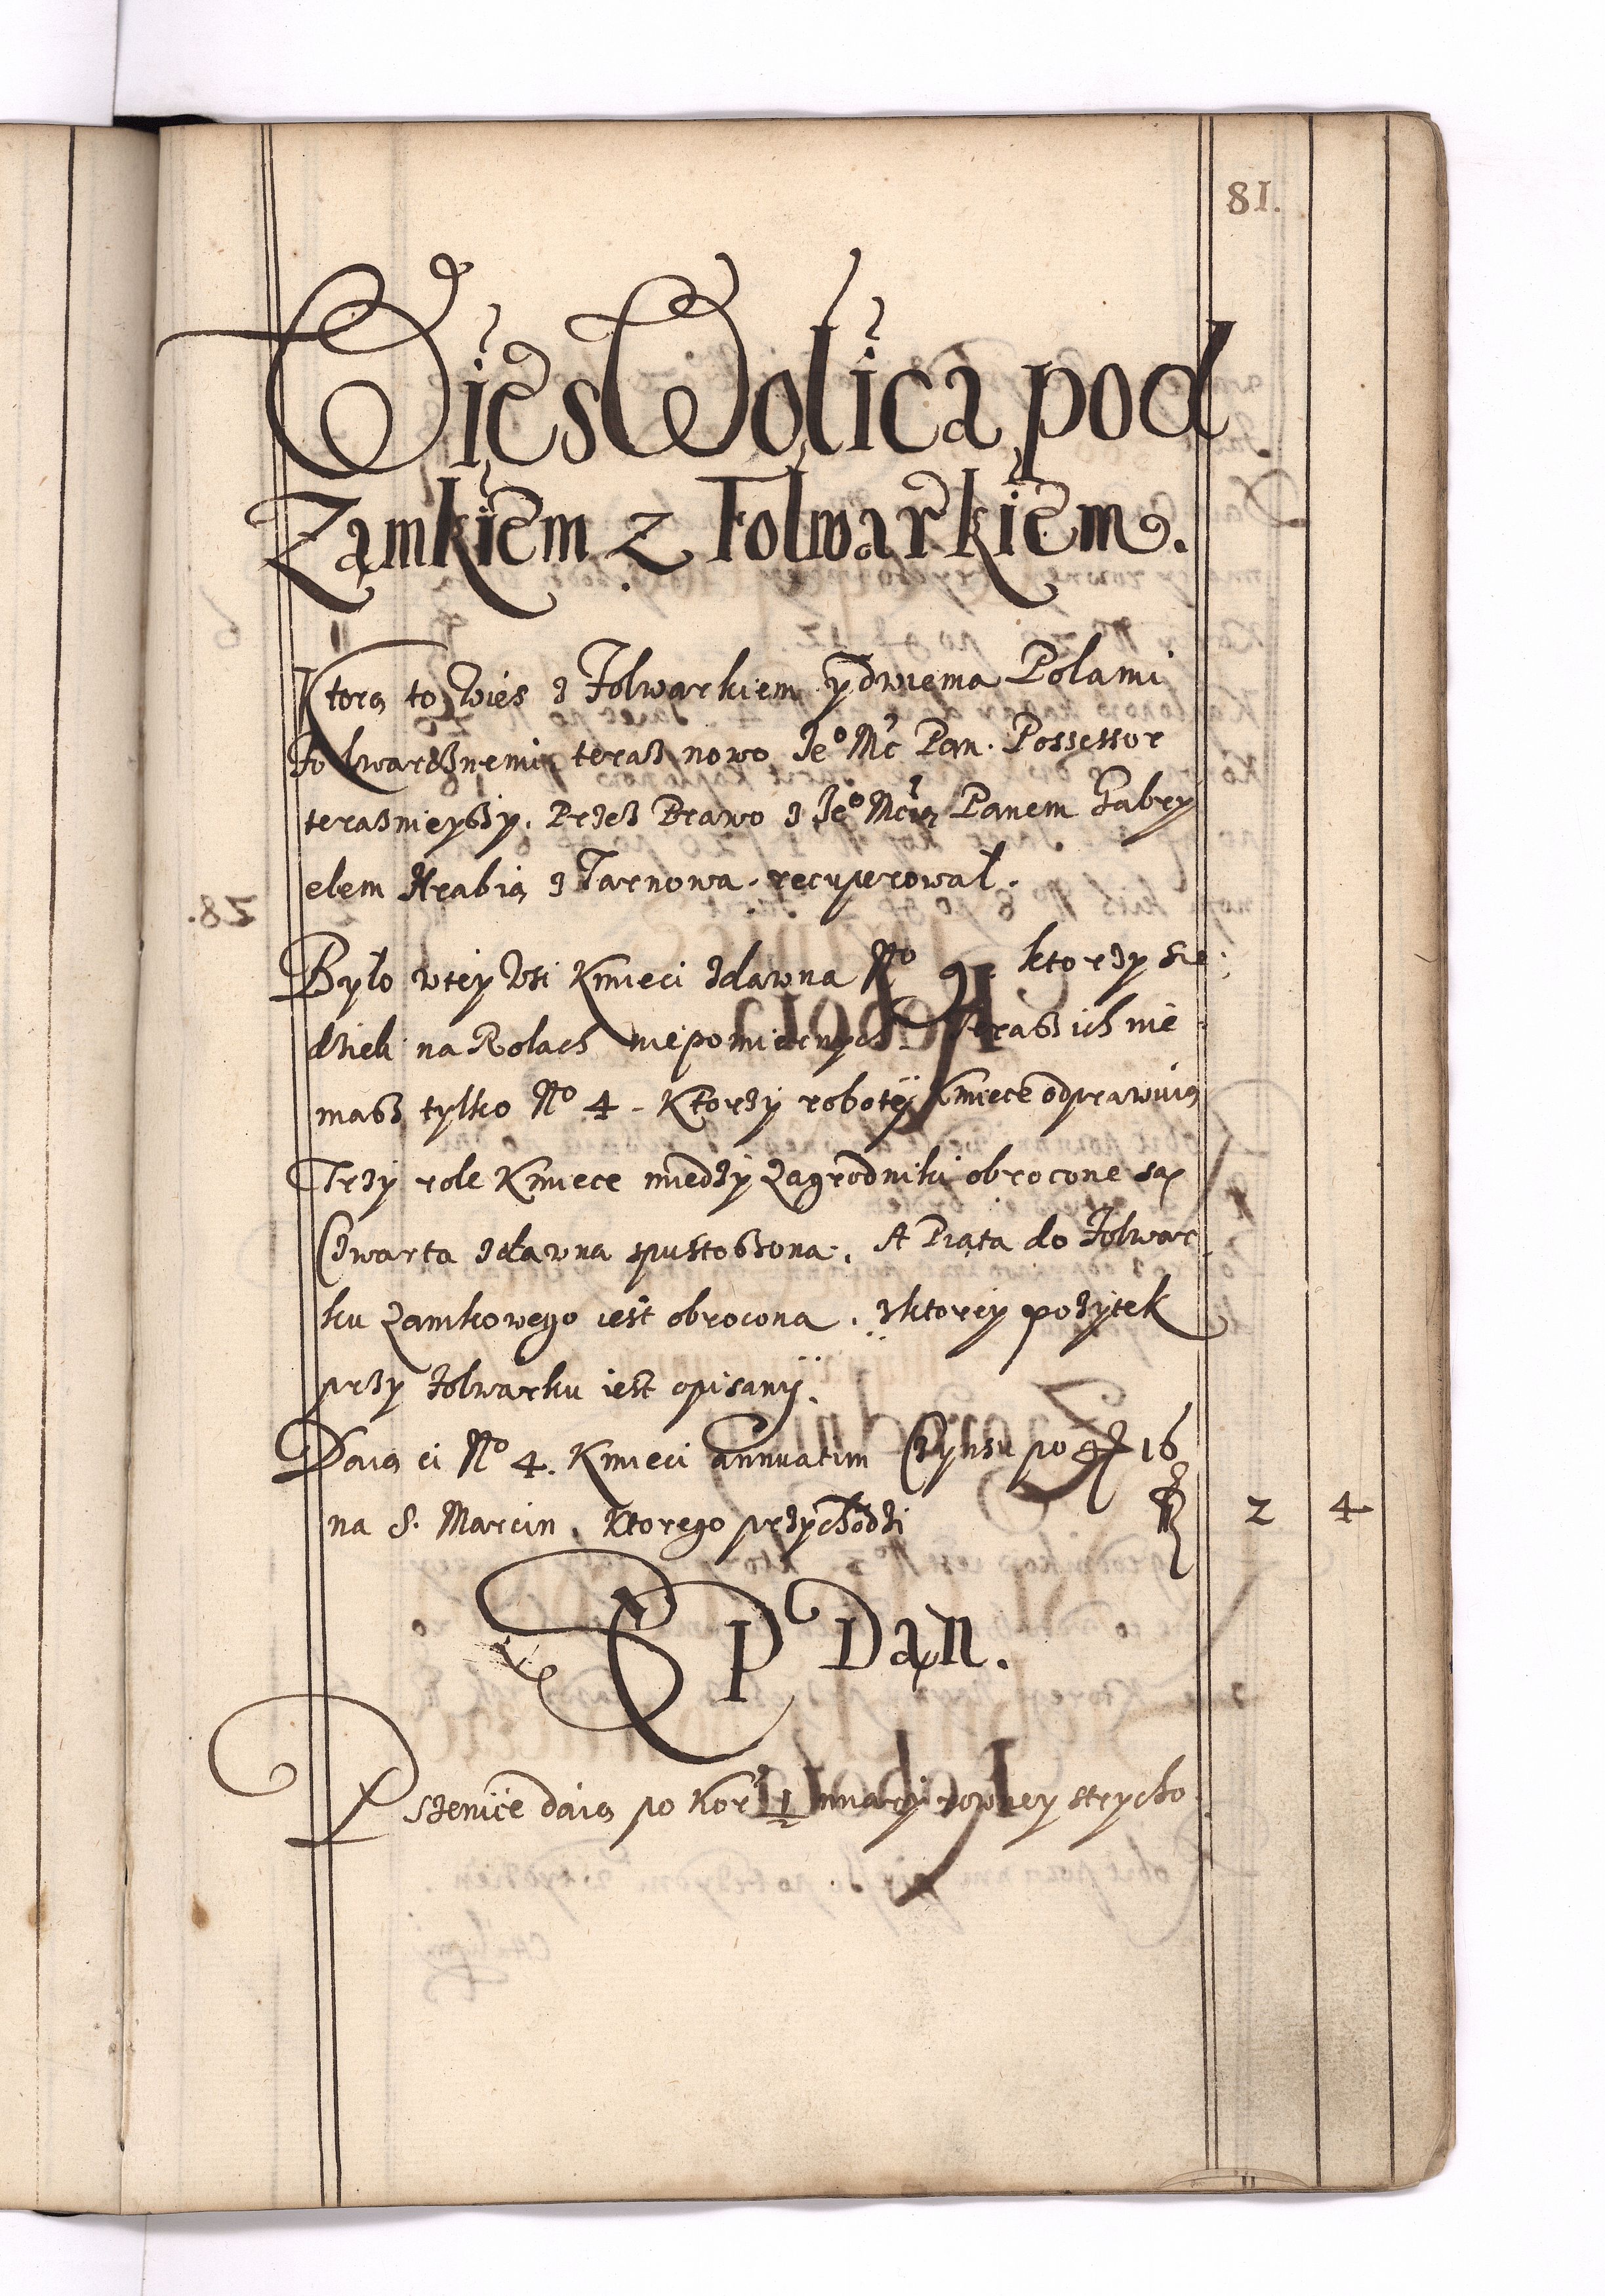 81.
Wies Wolica pod
Zamkiem z Folwarkiem.
Ktorą to Wies z Folwarkiem y dwiema Polami
Folwarcznemi, teraz nowo Ieº Mć Pan. Possessor
terasznieyszy. Przez Prawo z Ieº Mcią Panem Gabry
elem Hrabią z Tarnowa. recuperował.
Było wtey Wsi Kmieci zdawna Nº 9. ktorzy sie:
dzieli na Rolach niepomiernych. teraz ich nie
masz tylko Nº 4 - Ktorzy roboty Kmiece odprawuią
Trzy role Kmiece miedzy Zagrodniki obrocone są
Czwarta zdawna spustoszona. A Piąta do Folwar
ku Zamkowego iest obrocona. zktorey pożytek
przy Folwarku iest opisany.
Daią ci Nº 4. Kmieci annuatim Czynszu po gr 16
na S. Marcin. Ktorego przychodzi 2 4
SEP Dan.
Pszenice daią po Kor 1/2 miary rowney strycho